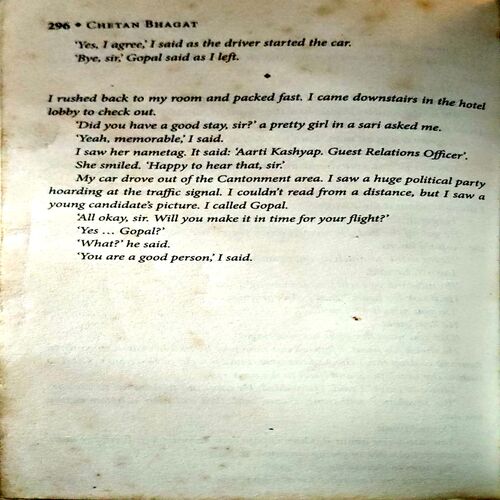 296 • CHETAN BHAGAT
‘Yes, I agree,’ I said as the driver started the car.
‘Bye, sir,’ Gopal said as I left.
◆
I rushed back to my room and packed fast. I came downstairs in the hotel
lobby to check out.
‘Did you have a good stay, sir?’ a pretty girl in a sari asked me.
‘Yeah, memorable,’ I said.
I saw her nametag. It said: ‘Aarti Kashyap. Guest Relations Officer’.
She smiled. ‘Happy to hear that, sir.’
My car drove out of the Cantonment area. I saw a huge political party
hoarding at the traffic signal. I couldn’t read from a distance, but I saw a
young candidate’s picture. I called Gopal.
‘All okay, sir. Will you make it in time for your flight?’
‘Yes ... Gopal?’
‘What?’ he said.
‘You are a good person,’ I said.